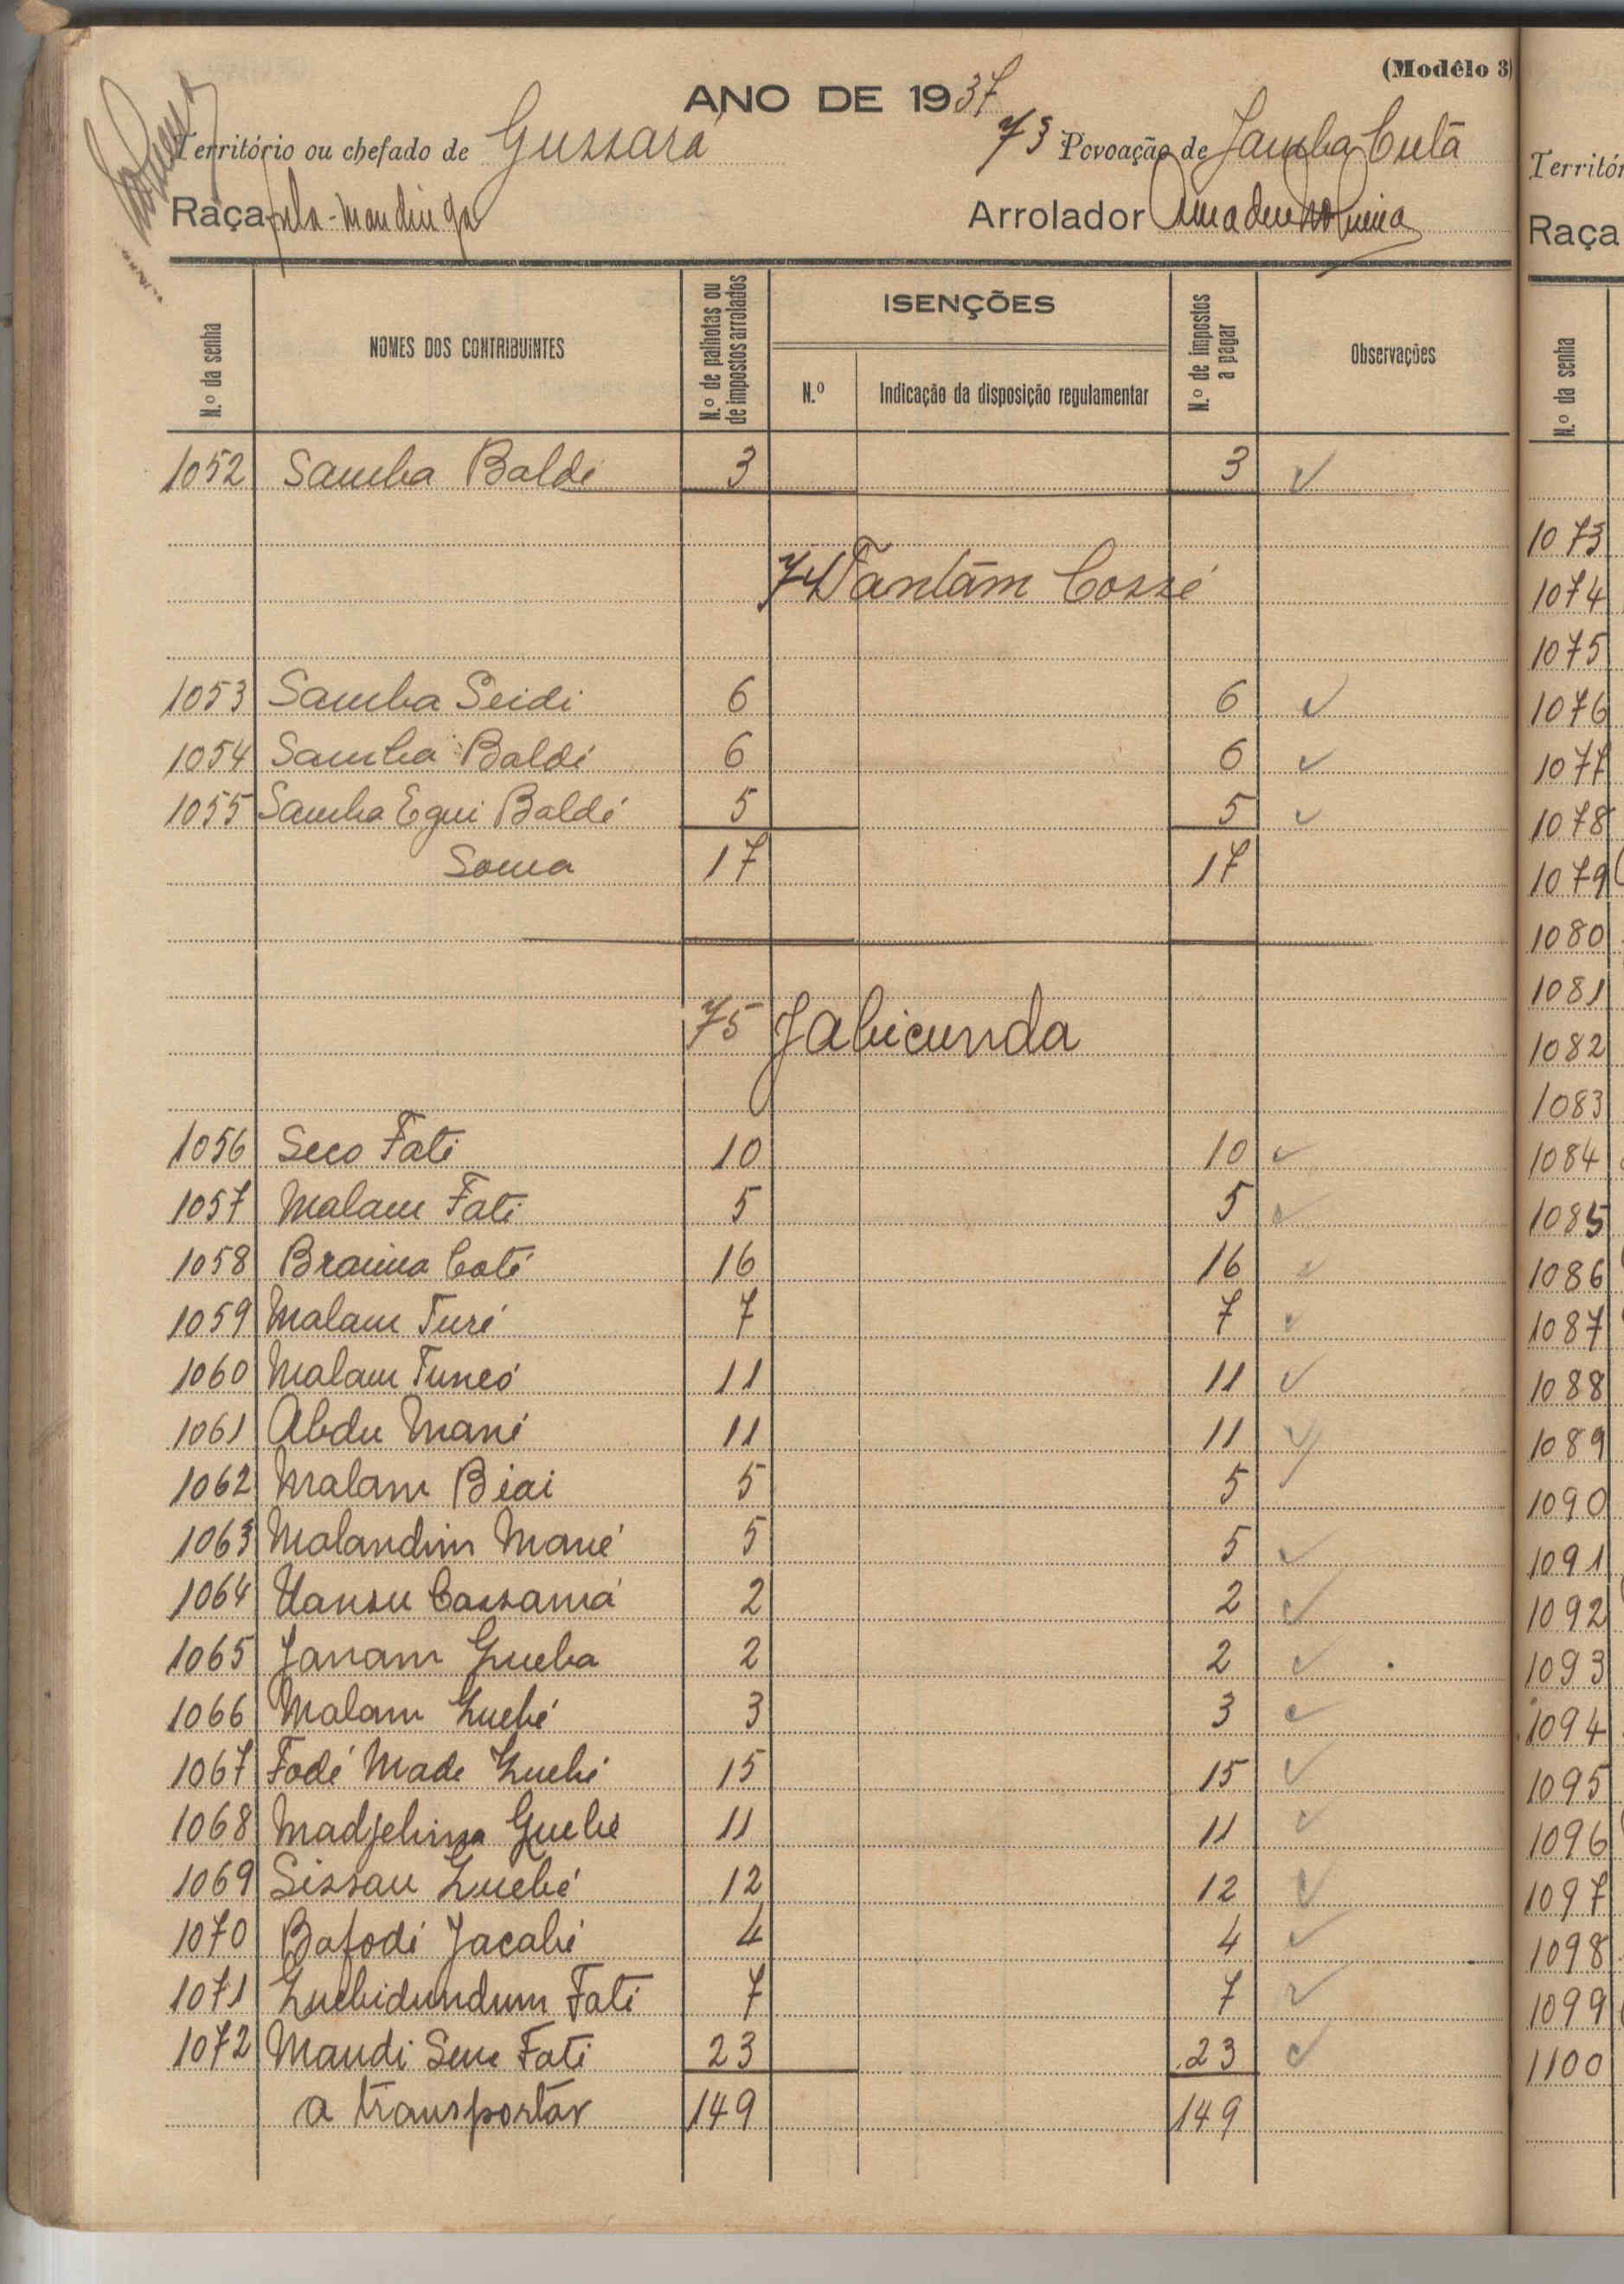 (Modêlo 3)
ANO DE 1937
Território ou chefado de Gussará 73 Povoação de Jamba Cutã
Raça fula-mandinga Arrolador Amadeu Nogueira
N.º da senha
NOMES DOS CONTRIBUINTES
N.º de palhotas ou de impostos arrolados
ISENÇÕES
N.º
Indicação da disposição regulamentar
N.º de impostos a pagar
Observações
1052 Samba Baldé 3 3 ✓
74 Tantãm Cossé
1053 Samba Seidi 6 6 ✓
1054 Samba Baldé 6 6 ✓
1055 Samba Egui Baldé 5 5 ✓
Soma 17 17
75 Jabicunda
1056 Seco Fati 10 10 ✓
1057 Malam Fati 5 5 ✓
1058 Braima Coté 16 16 ✓
1059 Malam Turé 7 7 ✓
1060 Malam Funcó 11 11 ✓
1061 Abdu Mané 11 11 ✓
1062 Malam Biai 5 5
1063 Malandim Mané 5 5 ✓
1064 Uansu Cassamá 2 2 ✓
1065 Janam Gueba 2 2 ✓
1066 Malam Quebé 3 3 ✓
1067 Fodé Made Quebé 15 15 ✓
1068 Madjebima Guebé 11 11 ✓
1069 Sissau Quebé 12 12 ✓
1070 Bafodé Jacabé 4 4 ✓
1071 Quebidundum Fati 7 7 ✓
1072 Maudi Sene Fati 23 23 ✓
a transportar 149 149
Territór
Raça
N.º da senha
1073
1074
1075
1076
1077
1078
1079
1080
1081
1082
1083
1084
1085
1086
1087
1088
1089
1090
1091
1092
1093
1094
1095
1096
1097
1098
1099
1100